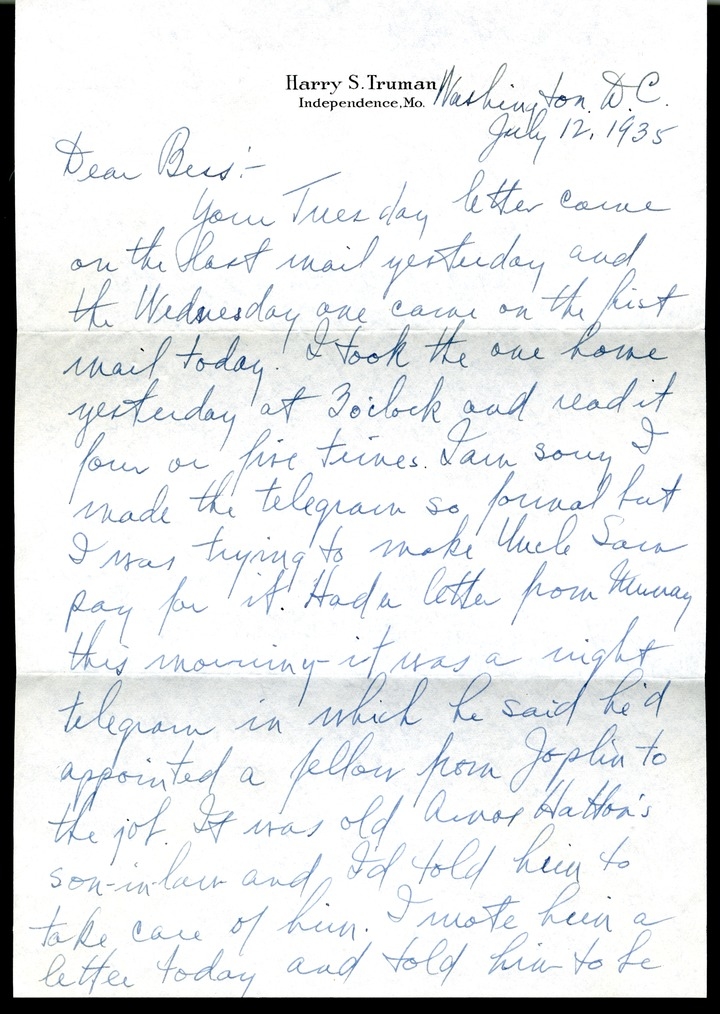 Harry S. Truman
Independence, Mo.
Washington, D.C.
July 12, 1935
Dear Bess:-
Your Tuesday letter came
on the last mail yesterday and
the Wednesday one came on the first
mail today. I took the one home
yesterday at 3 o'clock and read it
four or five times. I am sorry I
made the telegram so formal but
I was trying to make Uncle Sam
pay for it. Had a letter from Murray
this morning - it was a night
telegram in which he said he'd
appointed a fellow from Joplin to
the job. It was old Hatton's
son-in-law and I'd told him to
take care of him. I wrote him a
letter today and told him to be